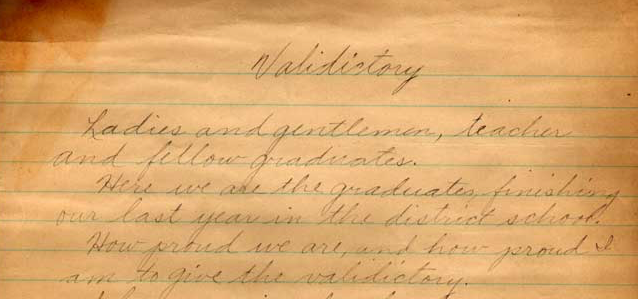 Validictory
Ladies and gentlemen, teacher
and fellow graduates.
Here we are the graduates, finishing
our last year in the district school.
How proud we are, and how proud I
am to give the validictory.